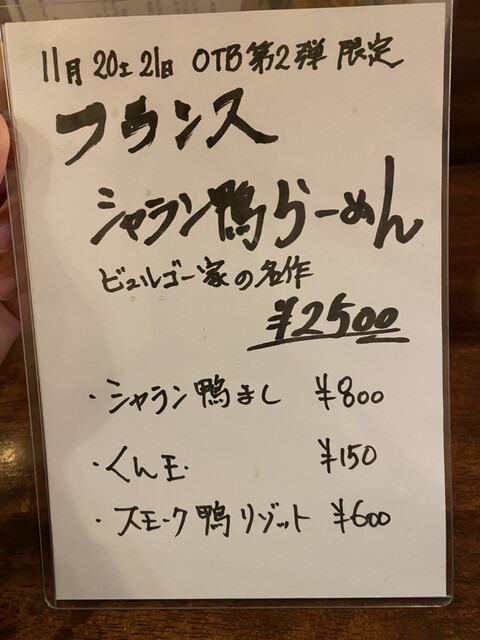 11月 20土 21日 OTB 第2弾 限定
フランス
シャラン鴨らーめん
ビュルゴー家の名作
¥2500
・シャラン鴨まし ¥800
・くん玉 ¥150
・スモーク鴨リゾット ¥600